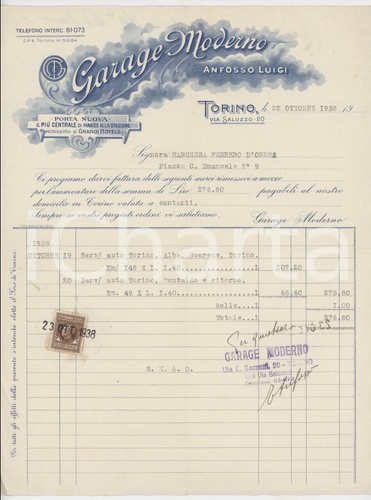 TELEFONO INTERC. 61-073
C.P.E. Torino N.
Garage Moderno
ANFOSSO LUIGI
PORTA NUOVA
IL PIÙ CENTRALE DI FIANCO ALLA STAZIONE
GRANDI HOTELS
TORINO, li 22 OTTOBRE 1938 19
VIA SALUZZO-20
Signora MARCHESA FERRERO D'
Piazza C. Emanuele N° 9
Ci pregiamo darvi fattura delle seguenti merci rimessevi a mezzo
per l'ammontare della somma di Lire 276.80 pagabili al nostro
domicilio in Torino valuta a contanti.
Sempre ai vostri pregiati ordini vi salutiamo. Garage Moderno
1938
OTTOBRE 19 Serv/ auto Torino, Alba, Guarene, Torino.
Km/ 148 X L. 1.40....L 207.20
20 Serv/ auto Torino, Montaldo e ritorno.
Km. 49 X L. 1.40....L 68.60 £75.80
Bollo L 1.00
Totale L 276.80
23 OTT 1938
Per
GARAGE MODERNO
20 - TORINO
Via Saluzzo
S. E. & O.
Per tutti gli effetti della presente s'intende eletto il Foro di Torino